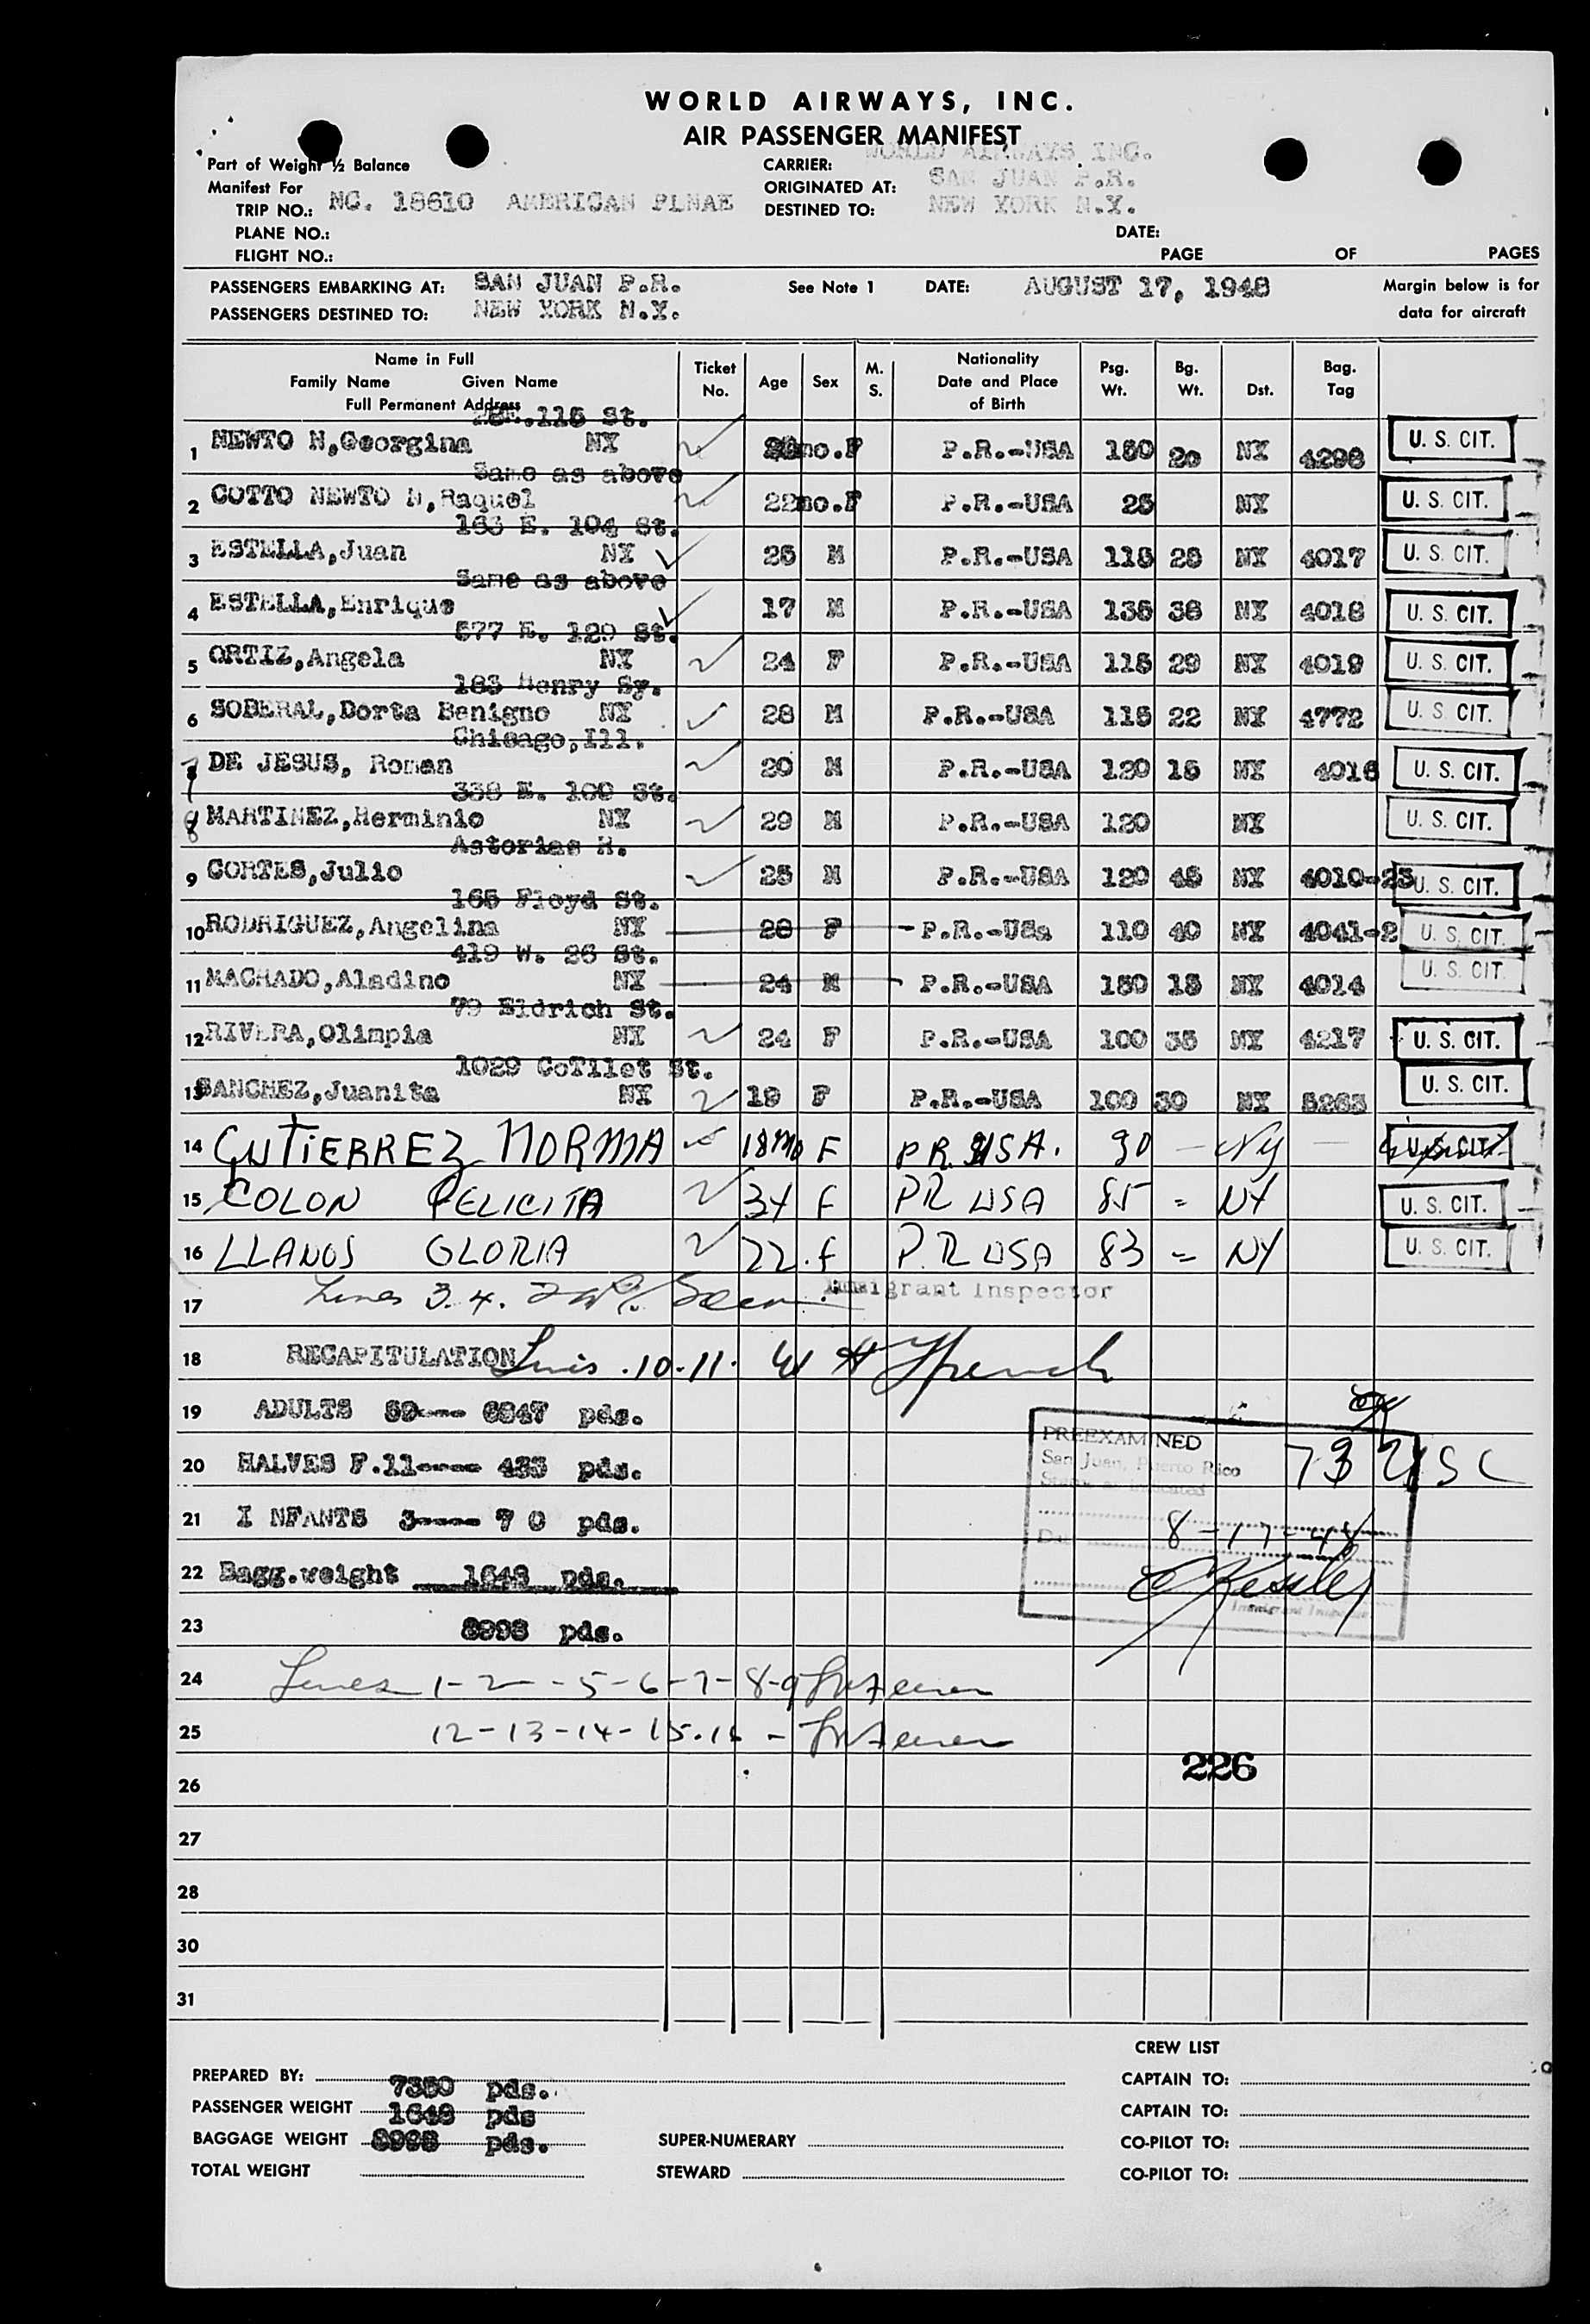 WORLD AIRWAYS, INC.
AIR PASSENGER MANIFEST
Part of Weight ½ Balance
Manifest For
CARRIER: WORLD AIRWAYS INC.
ORIGINATED AT: SAN JUAN P.R.
TRIP NO.: NC. 18610 AMERICAN PLNAE
DESTINED TO: NEW YORK N.Y.
PLANE NO.:
DATE:
FLIGHT NO.:
PAGE OF PAGES
PASSENGERS EMBARKING AT: SAN JUAN P.R. See Note 1 DATE: AUGUST 17, 1948 Margin below is for
PASSENGERS DESTINED TO: NEW YORK N.Y. data for aircraft
Name in Full
Family Name Given Name
Full Permanent Address
Ticket No. Age Sex M. S. Nationality Date and Place of Birth Psg. Wt. Bg. Wt. Dst. Bag. Tag
115 St.
1 NEWTO N,Georgina NY F P.R.-USA 150 20 NY 4298 U. S. CIT.
Same as above
2 COTTO NEWTO N,Raquel 22mo.F P.R.-USA 25 NY U. S. CIT.
163 E. 104 St.
3 ESTELLA,Juan NY 25 M P.R.-USA 115 28 NY 4017 U. S. CIT.
Same as above
4 ESTELLA,Enrique 17 M P.R.-USA 135 38 NY 4018 U. S. CIT.
577 E. 129 St.
5 ORTIZ,Angela NY 24 F P.R.-USA 115 29 NY 4019 U. S. CIT.
183 Henry Sy.
6 SOBERAL,Dorta Benigno NY 28 M P.R.-USA 115 22 NY 4772 U. S. CIT.
Chicago,Ill.
7 DE JESUS, Roman 20 M P.R.-USA 120 15 NY 4016 U. S. CIT.
338 E. 100 St.
8 MARTINEZ,Herminio NY 29 M P.R.-USA 120 NY U. S. CIT.
Astorias H.
9 CORTES,Julio 25 M P.R.-USA 120 45 NY 4010-23 U. S. CIT.
165 Floyd St.
10 RODRIGUEZ,Angelina NY 28 F P.R.-USa 110 40 NY 4041-2 U. S. CIT.
419 W. 26 St.
11 MACHADO,Aladino NY 24 M P.R.-USA 150 15 NY 4014 U. S. CIT.
79 Eldrich St.
12 RIVERA,Olimpia NY 24 F P.R.-USA 100 35 NY 4217 U. S. CIT.
1029 CoTllet St.
13 SANCHEZ,Juanita NY 19 F P.R.-USA 100 30 NY 5263 U. S. CIT.
14 GUTIERREZ NORMA 18mo F PR USA. 30 — NY — U. S. CIT.
15 COLON FELICITA 34 F PR USA 85 = NY U. S. CIT.
16 LLANOS GLORIA 22 F P.R USA 83 = NY U. S. CIT.
17 Lines 3.4. Immigrant Inspector
18 RECAPITULATION Lines 10-11. W H French
19 ADULTS 59--- 6847 pds.
20 HALVES F.11---- 433 pds. 73 USC
PREEXAMINED
San Juan, Puerto Rico
21 I NFANTS 3---- 7 0 pds.
8-17-48
22 Bagg.weight 1648 pds.
Kessler
Immigrant Inspector
23 8998 pds.
24 Lines 1-2--5-6-7-8-9
25 12-13-14-15-16 -
226
26
27
28
30
31
CREW LIST
PREPARED BY:
7350 pds.
CAPTAIN TO:
PASSENGER WEIGHT 1648 pds
CAPTAIN TO:
BAGGAGE WEIGHT 8998 pds.
SUPER-NUMERARY
CO-PILOT TO:
TOTAL WEIGHT
STEWARD
CO-PILOT TO: